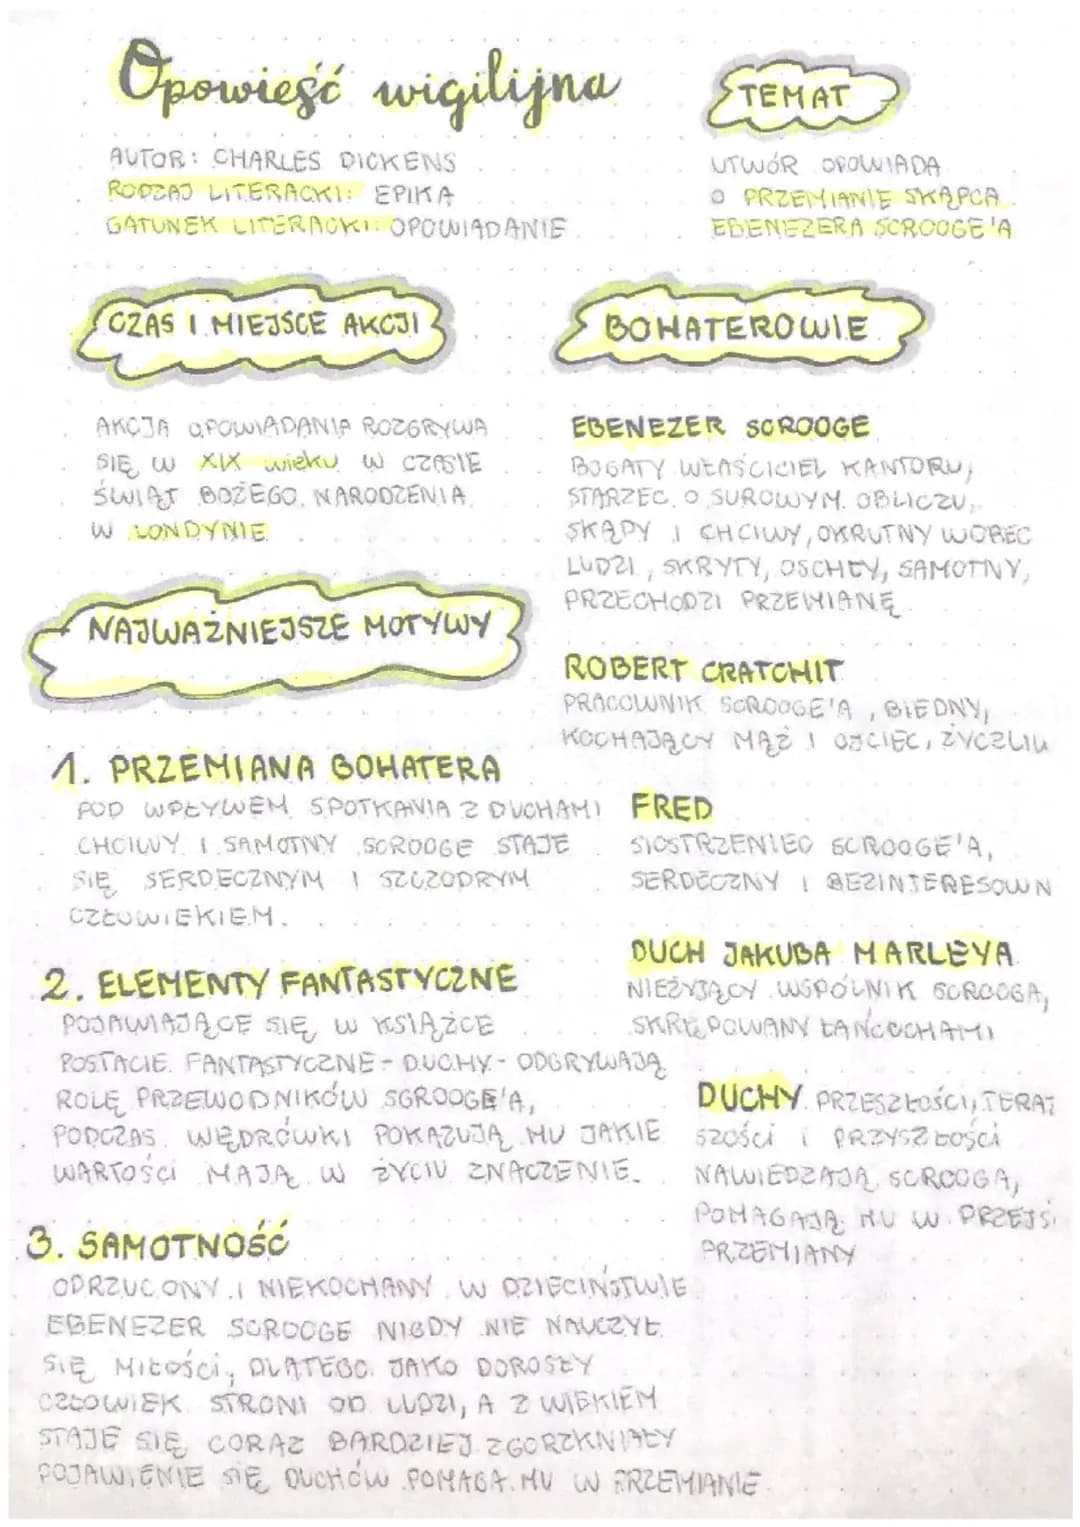 Opowieść wigilijna
AUTOR: CHARLES DICKENS
RODZAJ LITERACKI: EPIKA
GATUNEK LITERACKI: OPOWIADANIE
TEMAT
UTWÓR OPOWIADA
O PRZEMIANIE SKĄPCA
EBENEZERA SCROOGE'A
CZAS I MIEJSCE AKCJI
AKCJA OPOWIADANIA ROZGRYWA
SIĘ W XIX wieku W CZASIE
ŚWIĄT BOŻEGO NARODZENIA
W LONDYNIE
BOHATEROWIE
EBENEZER SCROOGE
BOGATY WŁAŚCICIEL KANTORU,
STARZEC O SUROWYM OBLICZU,
SKĄPY I CHCIWY, OKRUTNY WOBEC
LUDZI, SKRYTY, OSCHŁY, SAMOTNY,
PRZECHODZI PRZEMIANĘ
ROBERT CRATCHIT
PRACOWNIK SCROOGE'A, BIEDNY,
KOCHAJĄCY MĄŻ I OJCIEC, ŻYCZLIW
FRED
SIOSTRZENIEC SCROOGE'A,
SERDECZNY I BEZINTERESOWN
DUCH JAKUBA MARLEYA
NIEŻYJĄCY WSPÓLNIK SCROOGA,
SKRĘPOWANY ŁAŃCUCHAMI
DUCHY PRZESZŁOŚCI, TERAŹ
SZOŚCI I PRZYSZŁOŚCI
NAWIEDZAJĄ SCROOGA,
POMAGAJĄ MU W PRZEJŚ
PRZEMIANY
NAJWAŻNIEJSZE MOTYWY
1. PRZEMIANA BOHATERA
POD WPŁYWEM SPOTKANIA Z DUCHAMI
CHCIWY I SAMOTNY SCROOGE STAJE
SIĘ SERDECZNYM I SZCZODRYM
CZŁOWIEKIEM.
2. ELEMENTY FANTASTYCZNE
POJAWIAJĄCE SIĘ W KSIĄŻCE
POSTACIE FANTASTYCZNE - DUCHY - ODGRYWAJĄ
ROLĘ PRZEWODNIKÓW SCROOGE'A,
PODCZAS WĘDRÓWKI POKAZUJĄ MU JAKIE
WARTOŚCI MAJĄ W ŻYCIU ZNACZENIE.
3. SAMOTNOŚĆ
ODRZUCONY I NIEKOCHANY W DZIECIŃSTWIE
EBENEZER SCROOGE NIGDY NIE NAUCZYŁ
SIĘ MIŁOŚCI, DLATEGO JAKO DOROSŁY
CZŁOWIEK STRONI OD LUDZI, A Z WIEKIEM
STAJE SIĘ CORAZ BARDZIEJ ZGORZKNIAŁY
POJAWIENIE SIĘ DUCHÓW POMAGA MU W PRZEMIANIE